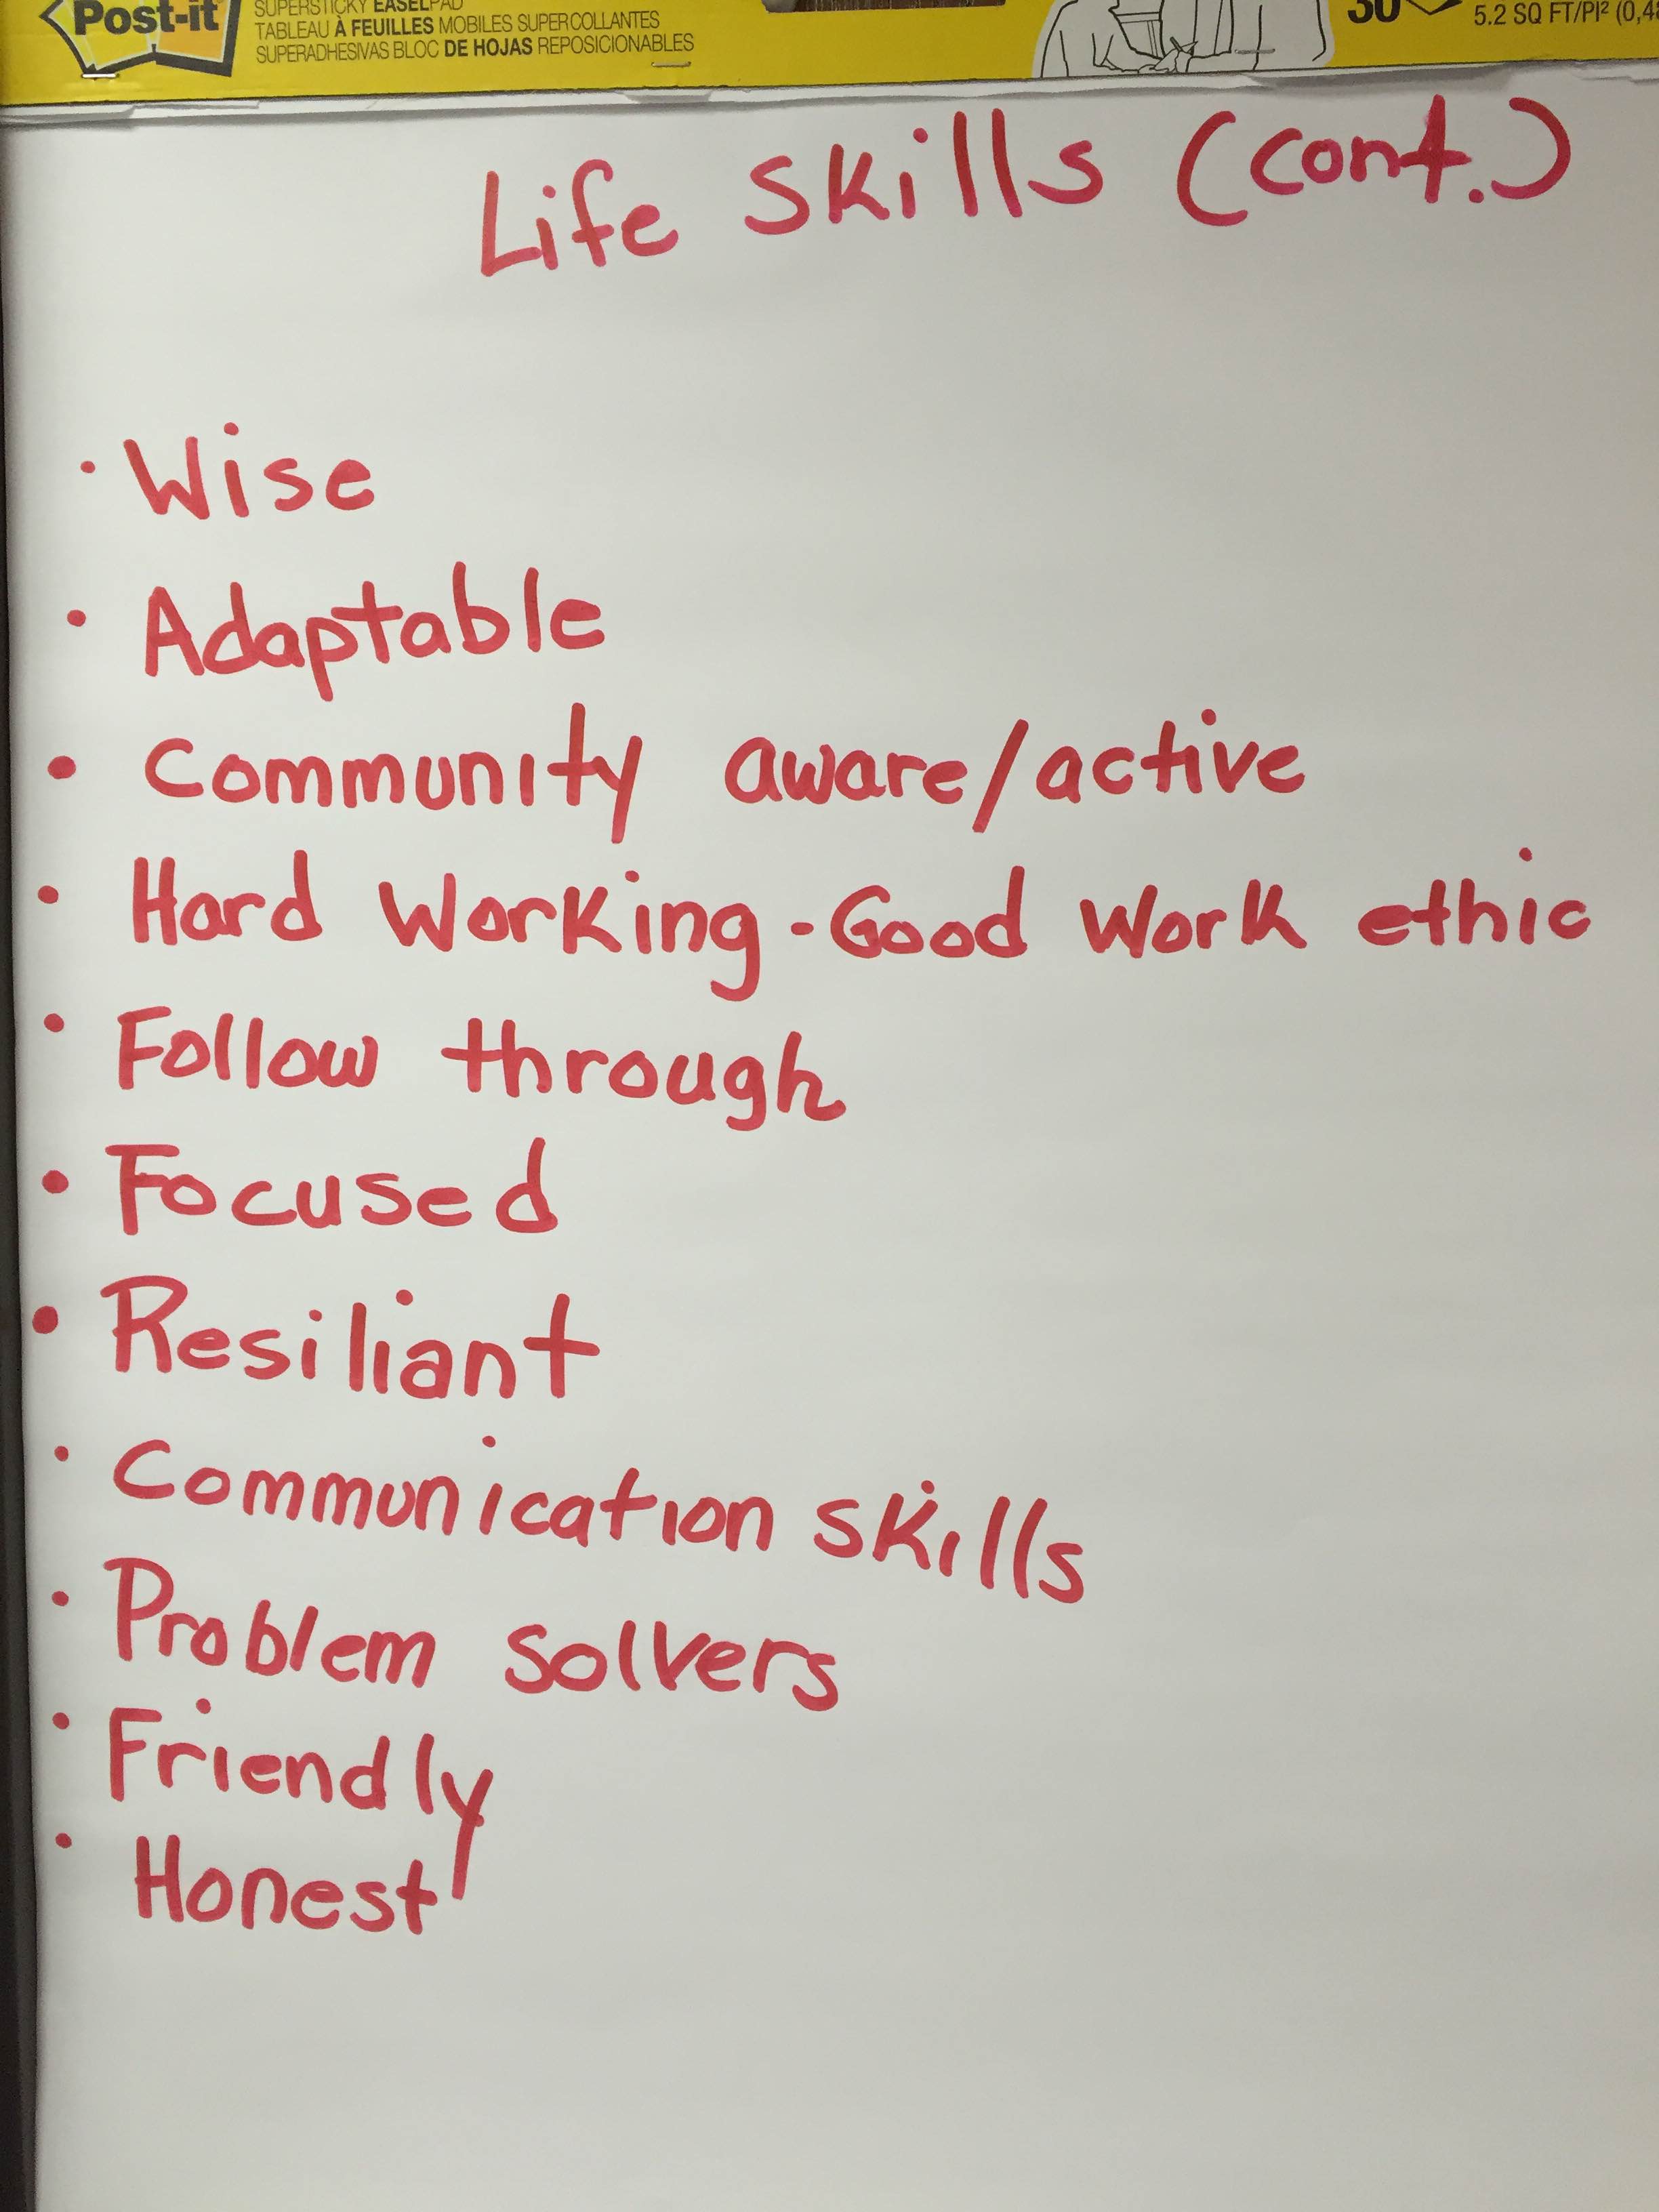 Post-it
SUPERSTICKY EASELPAD
TABLEAU À FEUILLES MOBILES SUPERCOLLANTES
SUPERADHESIVAS BLOC DE HOJAS REPOSICIONABLES
30
5.2 SQ FT/PI² (0,48
Life Skills (cont.)
• Wise
• Adaptable
• Community aware/active
• Hard Working - Good Work ethic
• Follow through
• Focused
• Resiliant
• Communication skills
• Problem solvers
• Friendly
• Honest